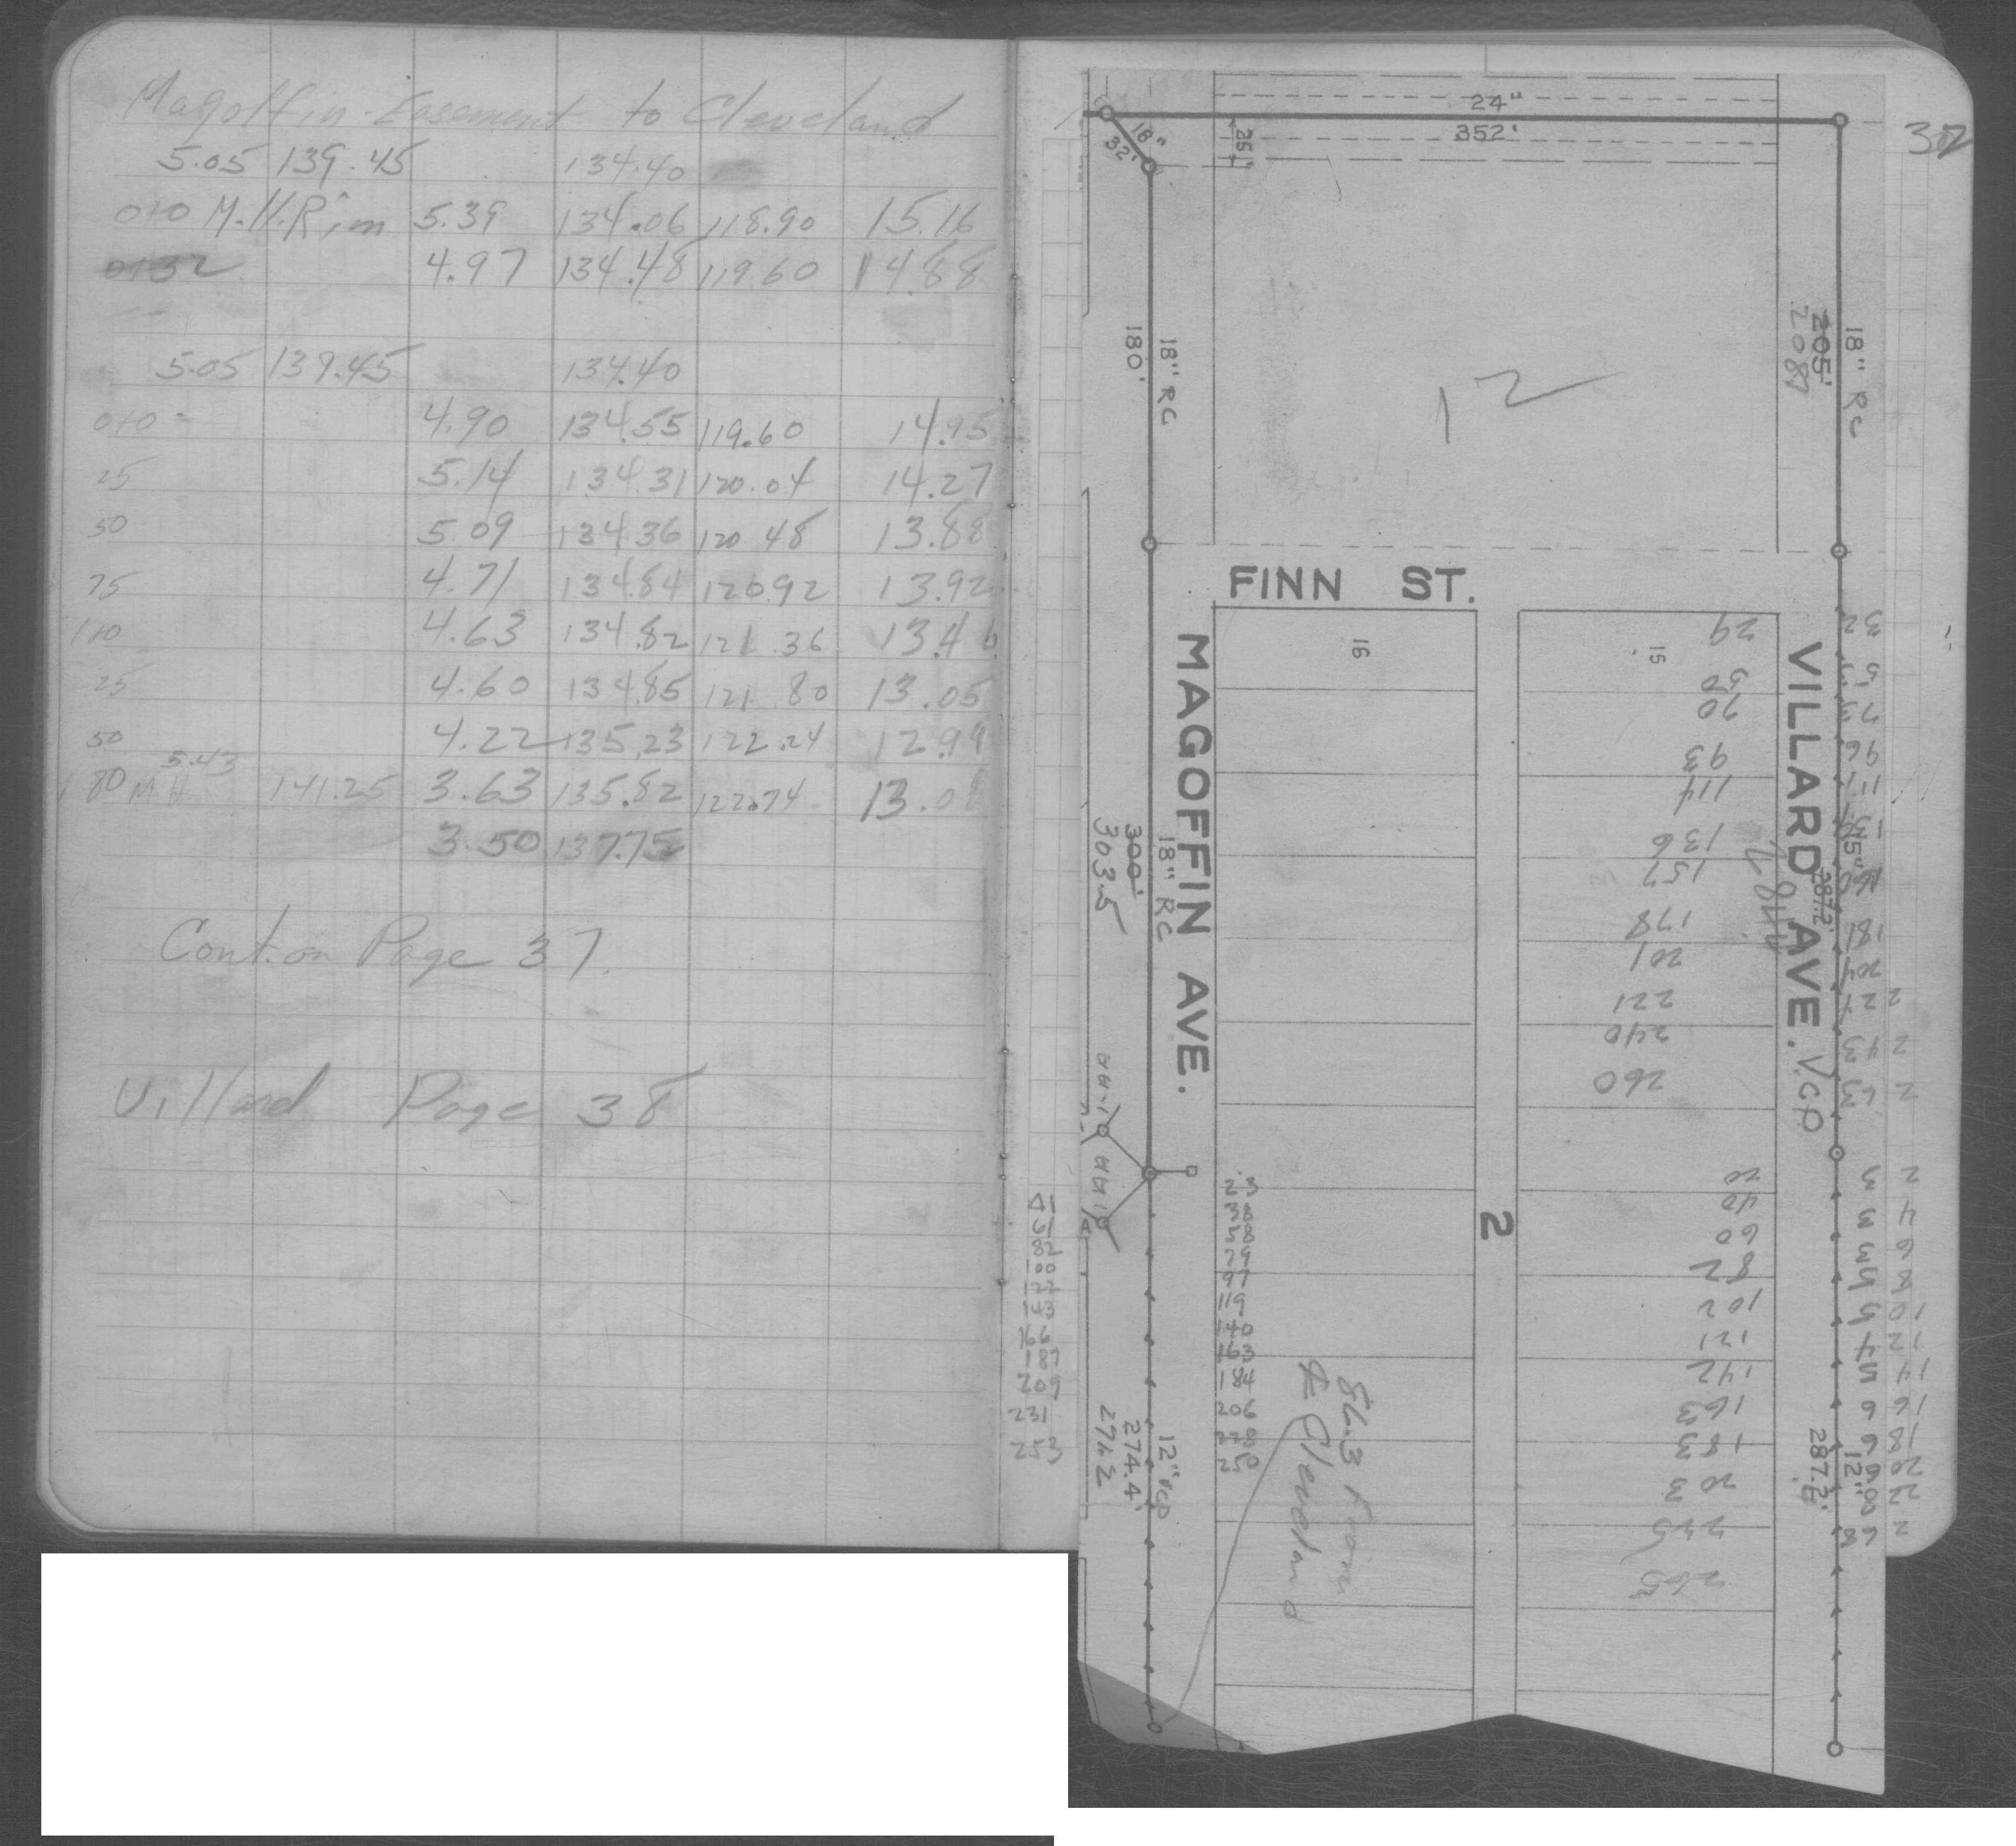 Magoffin - Easement to Cleveland
5.05 139.45 134.40
0+0 M.H. Rim 5.39 134.06 118.90 15.16
0+32 4.97 134.48 119.60 14.88
5.05 139.45 134.40
0+0 - 4.90 134.55 119.60 14.95
25 5.14 134.31 120.04 14.27
50 5.09 134.36 120 48 13.88
75 4.71 134.84 120.92 13.92
1+0 4.63 134.82 121.36 13.46
25 4.60 134.85 121 80 13.05
50 4.22 135.23 122.24 12.99
5.43
1 80 M.H. 141.25 3.63 135.82 122.74 13.08
3.50 137.75
Cont. on Page 37.
Villard Page 38
41
61
82
100
122
143
166
187
209
231
253
32
24"
352'
18"
32'
25'
180'
18" RC
12
18" RC
205'
2087
FINN ST.
MAGOFFIN AVE.
VILLARD AVE.
VCP
16
15
2
300'
303.5
18" RC
15"
287.2'
29
50
70
93
114
136
157
178
201
221
240
260
32
96
117
181
204
2 21
2 43
2 63
23
38
58
79
97
119
140
163
184
206
228
250
20
40
60
82
102
121
142
163
183
203
245
265
2 3
4 3
6 3
16 6
18 6
12" VCP
274.4'
271.2
86.3 From
℄ Cleveland
12"
287.2'